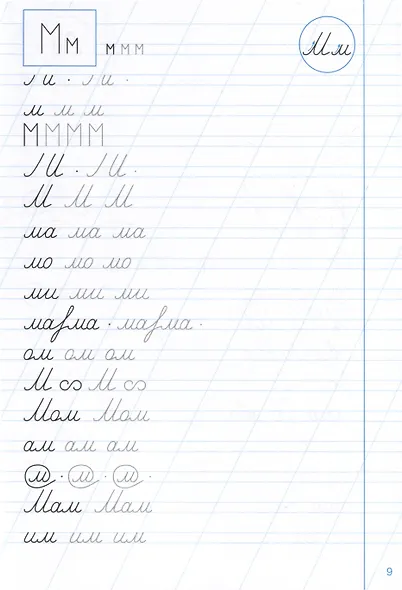 Мм м м м Мм
м м м
М М М М
М М М
ма ма ма
мо мо мо
ми ми ми
ма ма · ма ма ·
ом ом ом
М М
Мом Мом
ам ам ам
м · м · м ·
Мам Мам
им им им
9